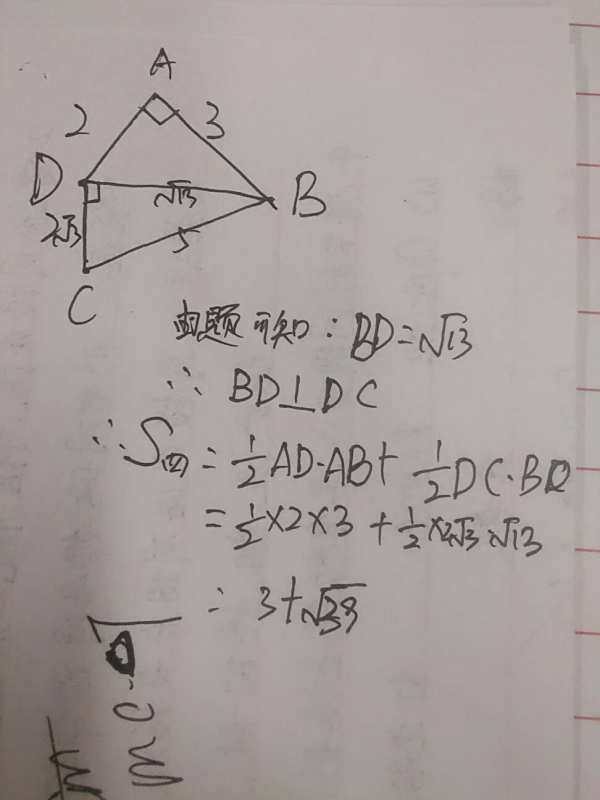 A
2
3
D
√13
B
2√3
5
C
由题可知：BD=√13
∴ BD⊥DC
∴ S四 = 1/2 AD·AB + 1/2 DC·BD
= 1/2×2×3 + 1/2×2√3·√13
= 3+√39